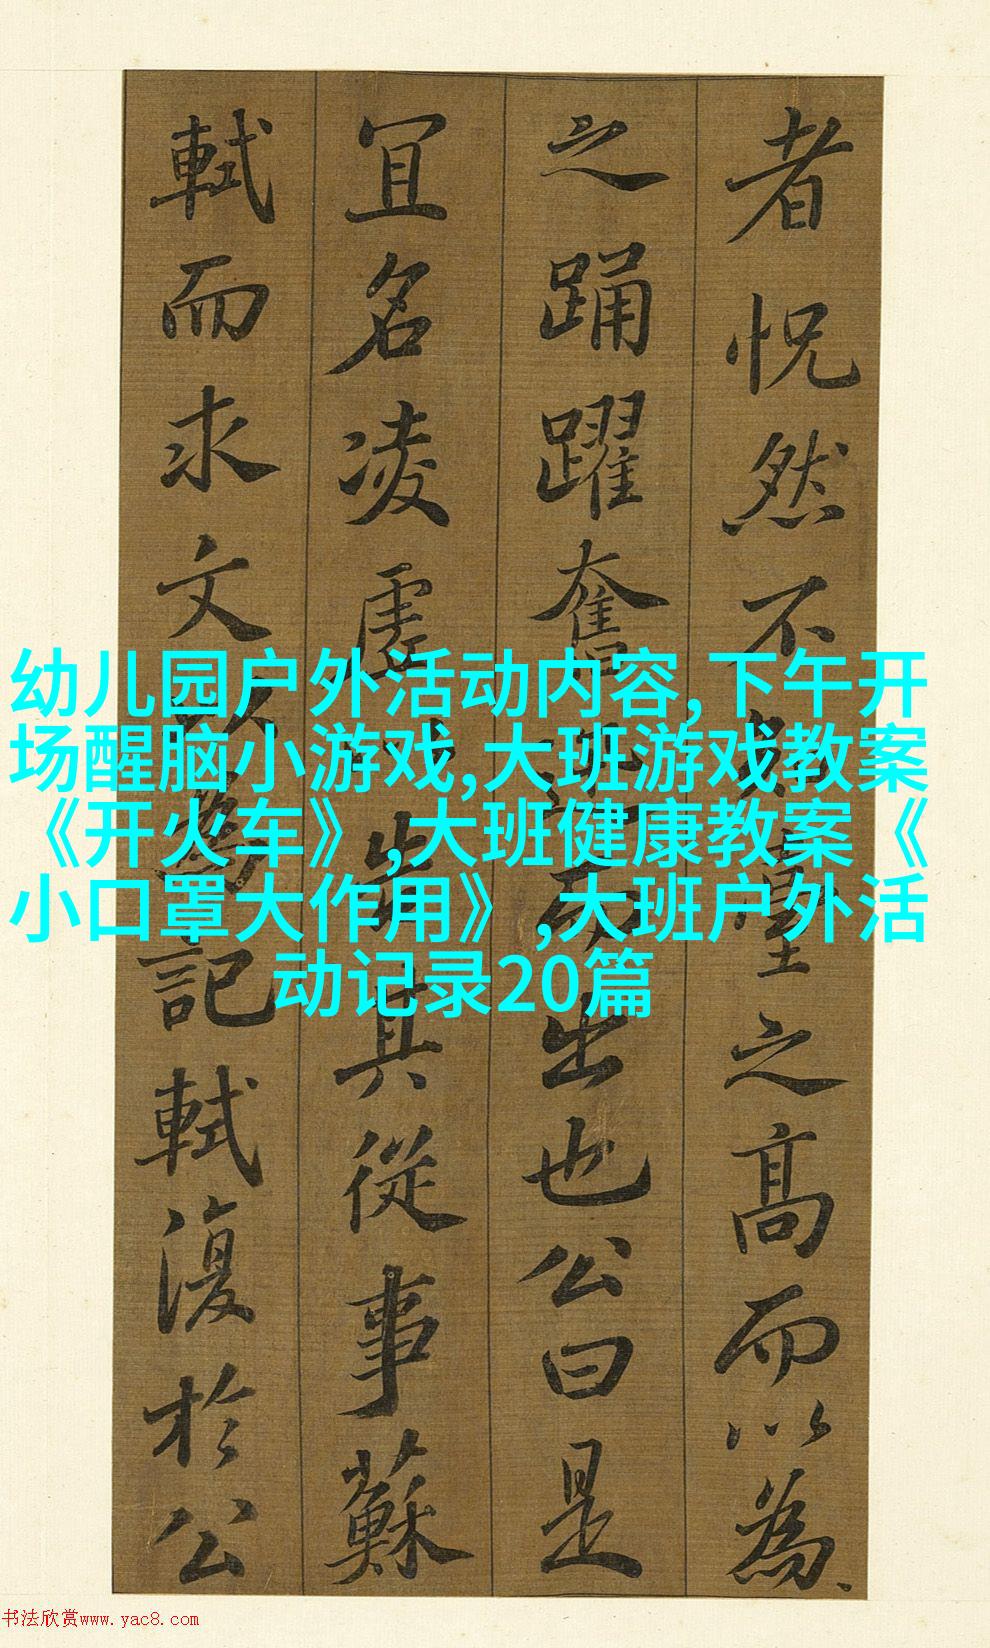 者怳然不知臺之高而以為
之踊躍奮迅而出也公曰是
宜名凌虛以告其從事蘇
軾而求文以為記軾復於公
幼儿园户外活动内容,下午开
场醒脑小游戏,大班游戏教案
《开火车》,大班健康教案《
小口罩大作用》,大班户外活
动记录20篇
书法欣赏www.yac8.com